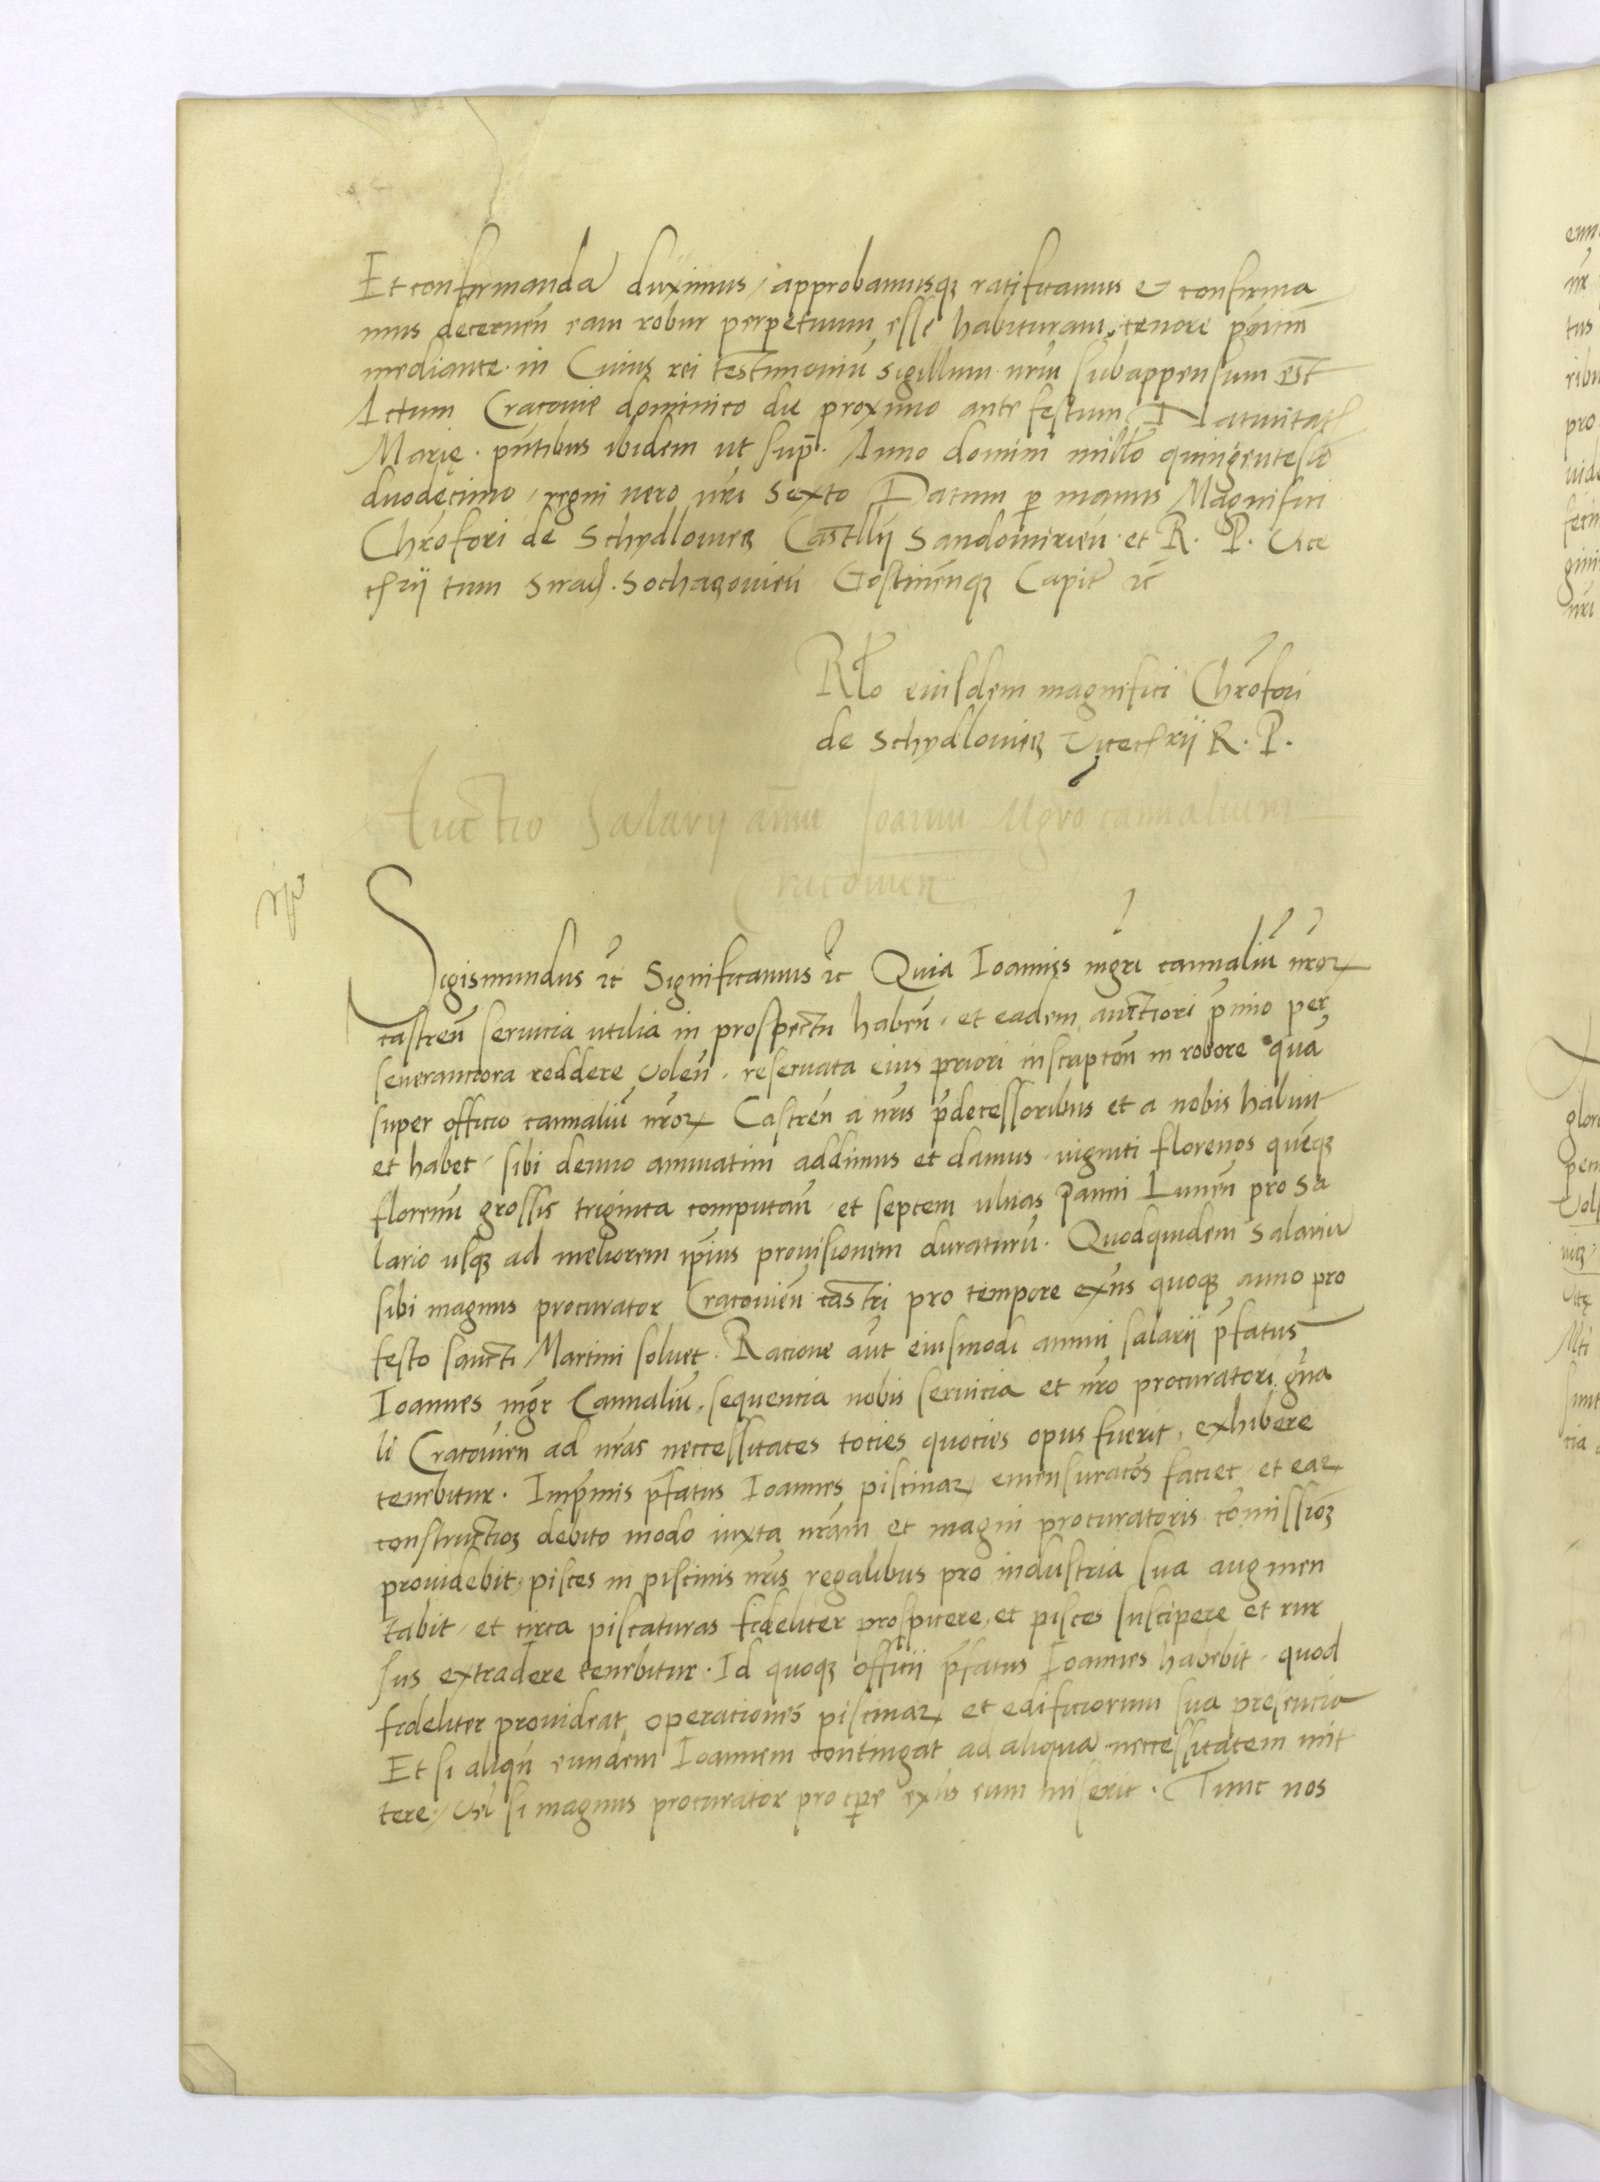 Et confirmanda duximus, approbamusq; ratificamus et confirma
mus decernen̄ eam robur perpetuum esse habituram, tenore p̄ntium
mediante. in Cuius rei testimoniū sigillum nr̄m subappensum est
Actum Cracovie dominico die proximo ante festum Natiuitatis
Marie. pn̄tibus ibidem ut sup̄. Anno domini millō quingentesīo
duodecimo, regni uero nr̄i sexto Datum p manus Magnifici
Chrōfori de Schydlowiecz Castllīi Sandomirien̄. et R. P. Vice
cfrii tum Sirad. Sochaczouien̄ Gostinen̄q; Capit̄ ⁊c̄
Rlō eiusdem magnifici Chrōfori
de Schydlowiecz Vicecfrii R. P.
Auctio Salarij annui Joanni Mgrō cannalium
Cracouien
Sigismundus ⁊c̄ Significamus ⁊c̄ Quia Ioannis mgr̄i cannaliū nr̄oꝝ
castren̄ seruicia utilia in prospectu haben̄. et eadem auctiori p̄mio per
seuerantiora reddere volen̄. reseruata eius priori inscriptōn in robore quā
super officio cannaliū nr̄oꝝ Castren̄ a nr̄is p̄decessoribus et a nobis habuit
et habet, sibi denuo annuatim addimus et damus. uiginti florenos quēq;
florenū grossis triginta computan̄, et septem ulnas panni Lunen̄ pro Sa
lario usq; ad meliorem ip̄ius prouisionem duraturū. Quodquidem Salariū
sibi magnus procurator Cracouien̄ castri pro tempore exn̄s quoq; anno pro
festo sancti Martini soluet. Racione aūt eiusmodi annui salarii p̄fatus
Ioannes mgr̄ Cannaliū, sequencia nobis seruicia et nr̄o procuratori gn̄a
li Cracouien ad nr̄as neccessitates tocies quocies opus fuerit, exhibere
tenebitur. Imp̄mis p̄fatus Ioannes piscinaꝝ emensuracōes faciet, et eaꝝ
constructioē debito modo iuxta nr̄am et magni procuratoris cōmissioē
prouidebit, pisces in piscinis nr̄is regalibus pro industria sua augmen
tabit, et circa piscaturas fideliter prospicere, et pisces suscipere et rur
sus extradere tenebitur. Id quoq; officii p̄fatus Ioannes habebit, quod
fideliter prouideat operaciones piscinaꝝ et edificiorum sua presencia
Et si aliqn̄ eundem Ioannem contingat ad aliqua neccessitatem mit
tere, vel si magnus procurator pro tp̄e exn̄s eum miserit. Tunc nos